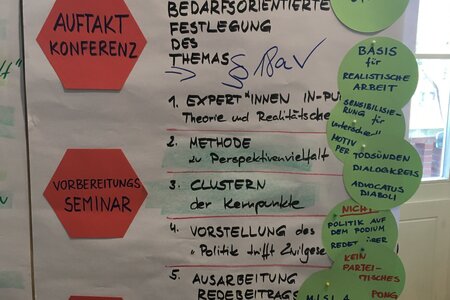 AUFTAKT
KONFERENZ
BEDARFSORIENTIERTE
FESTLEGUNG
DES
THEMAS
VORBEREITUNGS
SEMINAR
1. EXPERT*INNEN IN-PU
Theorie und Realitätsche
2. METHODE
zu Perspektivenvielfalt
3. CLUSTERN
der Kernpunkte
4. VORSTELLUNG DES
"Politik trifft Zivilgese
5. AUSARBEITUNG
REDEBEITRAGS
BASIS
für
REALISTISCHE
ARBEIT
SENSIBILISIE-
RUNG für
MOTIV
PER
TODSÜNDEN
DIALOGKREIS
ADVOCATUS
DIABOLI
NICHT
POLITIK AUF
DEM PODIUM
REDET ÜBER
KEIN
PARTEI-
TISCHES
PONG